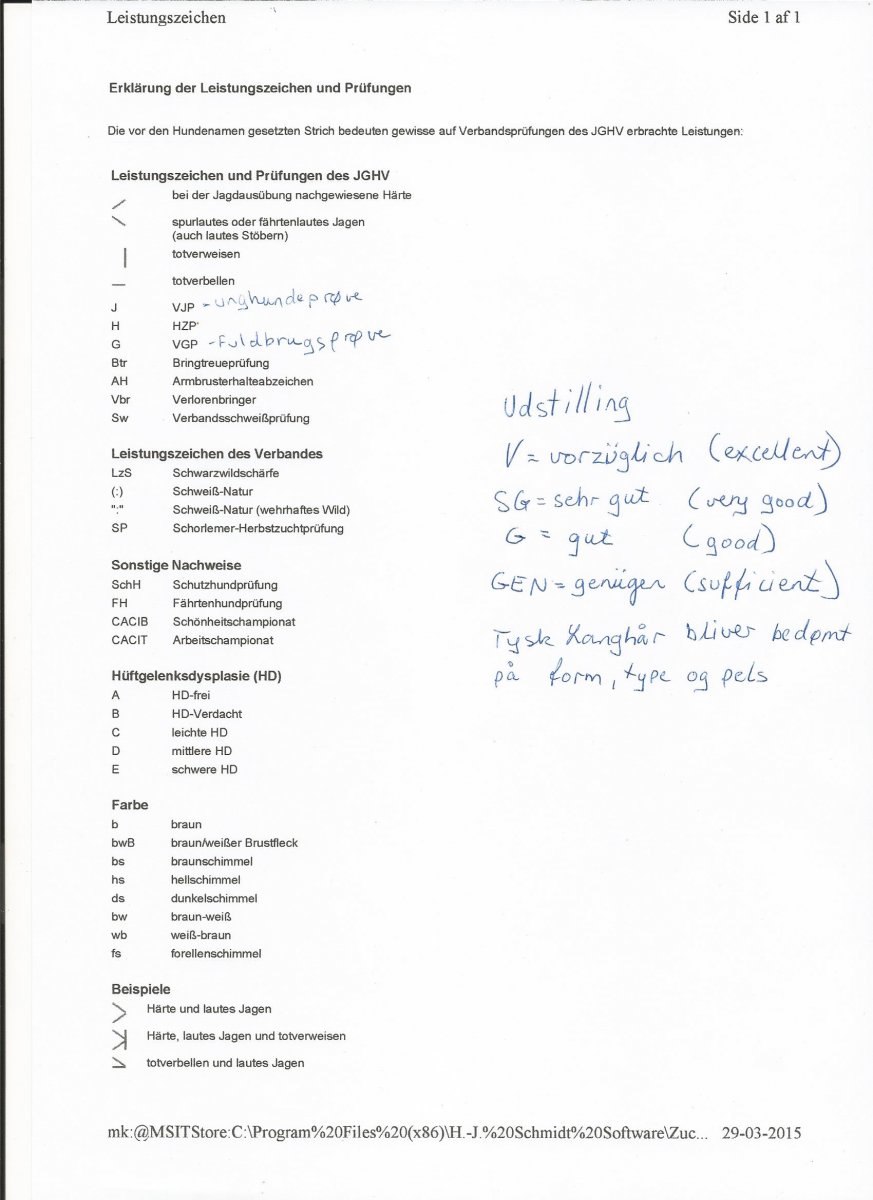 Leistungszeichen Side 1 af 1
Erklärung der Leistungszeichen und Prüfungen
Die vor den Hundenamen gesetzten Strich bedeuten gewisse auf Verbandsprüfungen des JGHV erbrachte Leistungen:
Leistungszeichen und Prüfungen des JGHV
bei der Jagdausübung nachgewiesene Härte
spurlautes oder fährtenlautes Jagen
(auch lautes Stöbern)
totverweisen
totverbellen
J VJP - unghundeprøve
H HZP
G VGP - Fuldbrugsprøve
Btr Bringtreueprüfung
AH Armbrusterhalteabzeichen
Vbr Verlorenbringer
Sw Verbandsschweißprüfung
Leistungszeichen des Verbandes
LzS Schwarzwildschärfe
(:) Schweiß-Natur
":" Schweiß-Natur (wehrhaftes Wild)
SP Schorlemer-Herbstzuchtprüfung
Sonstige Nachweise
SchH Schutzhundprüfung
FH Fährtenhundprüfung
CACIB Schönheitschampionat
CACIT Arbeitschampionat
Hüftgelenksdysplasie (HD)
A HD-frei
B HD-Verdacht
C leichte HD
D mittlere HD
E schwere HD
Farbe
b braun
bwB braun/weißer Brustfleck
bs braunschimmel
hs hellschimmel
ds dunkelschimmel
bw braun-weiß
wb weiß-braun
fs forellenschimmel
Beispiele
Härte und lautes Jagen
Härte, lautes Jagen und totverweisen
totverbellen und lautes Jagen
Udstilling
V = vorzüglich (excellent)
SG = sehr gut (very good)
G = gut (good)
GEN = genügen (sufficient)
Tysk Langhår bliver bedømt
på form, type og pels
mk:@MSITStore:C:\Program%20Files%20(x86)\H.-J.%20Schmidt%20Software\Zuc... 29-03-2015